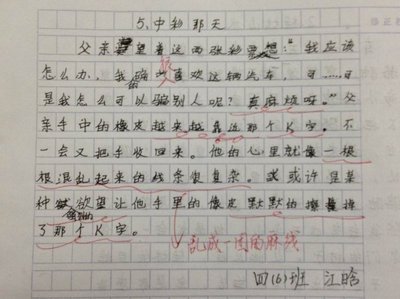 5、中彩那天
父亲望着这两张彩票想:“我应该
怎么办,我很喜欢这辆汽车,可……可
是我怎么可以骗别人呢?真麻烦呀。”父
亲手中的橡皮越来越靠近那个K字。不
一会又把手收回来。他的心里就像一根
根混乱起来的线条很复杂。或许是某
种欲望让他手里的像皮默默的擦掉
了那个K字。
乱成一团的麻线
四(6)班 江晗